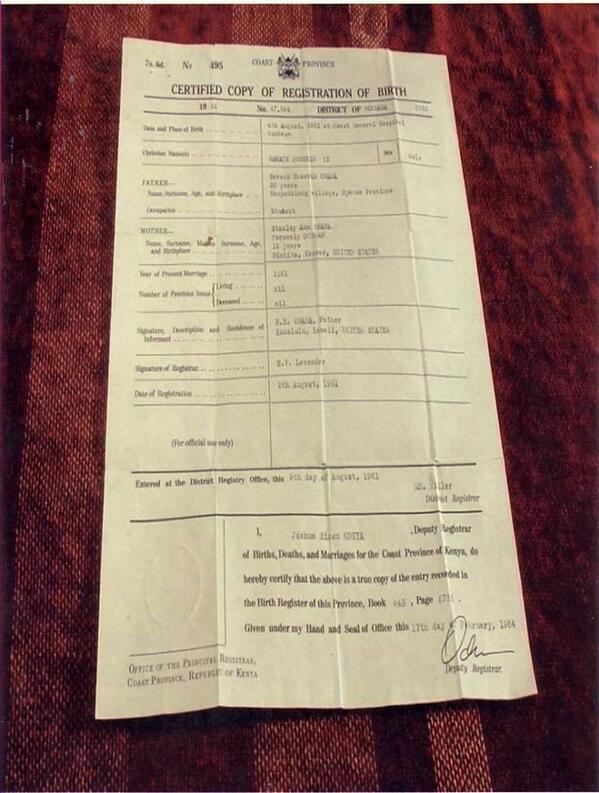 7s. 6d. No 495 COAST PROVINCE
CERTIFIED COPY OF REGISTRATION OF BIRTH
19 No. 47,044 DISTRICT OF
Date and Place of Birth 4th August, 1961 at Coast General Hospital
Christian Name(s) BARACK HUSSEIN II Sex Male
FATHER— Barack Hussein OBAMA
Name, Surname, Age, and Birthplace 26 years
village, Province
Occupation Student
MOTHER— Stanley Ann OBAMA
Name, Surname, Maiden Surname, Age, and Birthplace formerly DUNHAM
18 years
Wichita, Kansas, UNITED STATES
Year of Present Marriage 1961
Number of Previous Issue { Living nil
Deceased nil
Signature, Description and Residence of Informant B.H. OBAMA, Father
Honolulu, Hawaii, UNITED STATES
Signature of Registrar E.F. Lavender
Date of Registration August, 1961
(For official use only)
Entered at the District Registry Office, this 9th day of August, 1961
Miller
District Registrar
I, Joshua Simon , Deputy Registrar
of Births, Deaths, and Marriages for the Coast Province of Kenya, do
hereby certify that the above is a true copy of the entry recorded in
the Birth Register of this Province, Book 44B , Page .
Given under my Hand and Seal of Office this 17th day of February, 1964
Deputy Registrar.
OFFICE OF THE PRINCIPAL REGISTRAR,
COAST PROVINCE, REPUBLIC OF KENYA